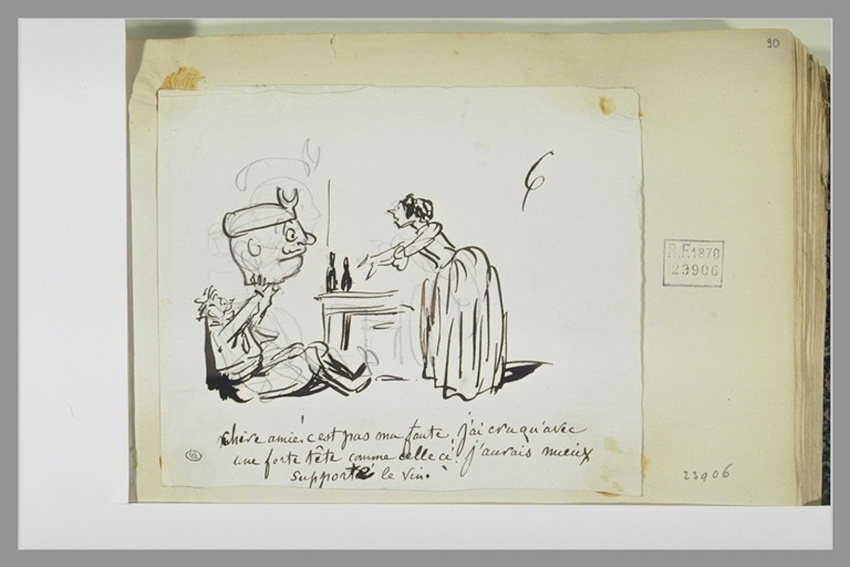 90
R.F.1870
23906
chère amie! c'est pas ma faute, j'ai cru qu'avec
une forte tête comme celle ci! j'aurais mieux
supporté le vin.
23906